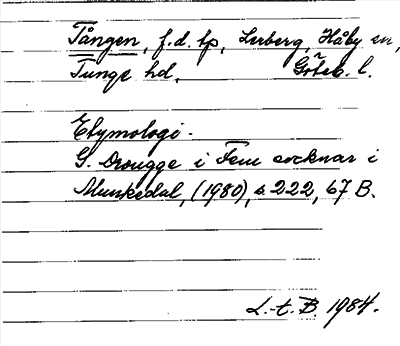 Tången, f.d. tp, Lerberg, Håby sn,
Tunge hd, Göteb. l.
Etymologi.
G. Drougge i Fem socknar i
Munkedal, (1980), s 222, 67 B.
L.-t. B. 1984.